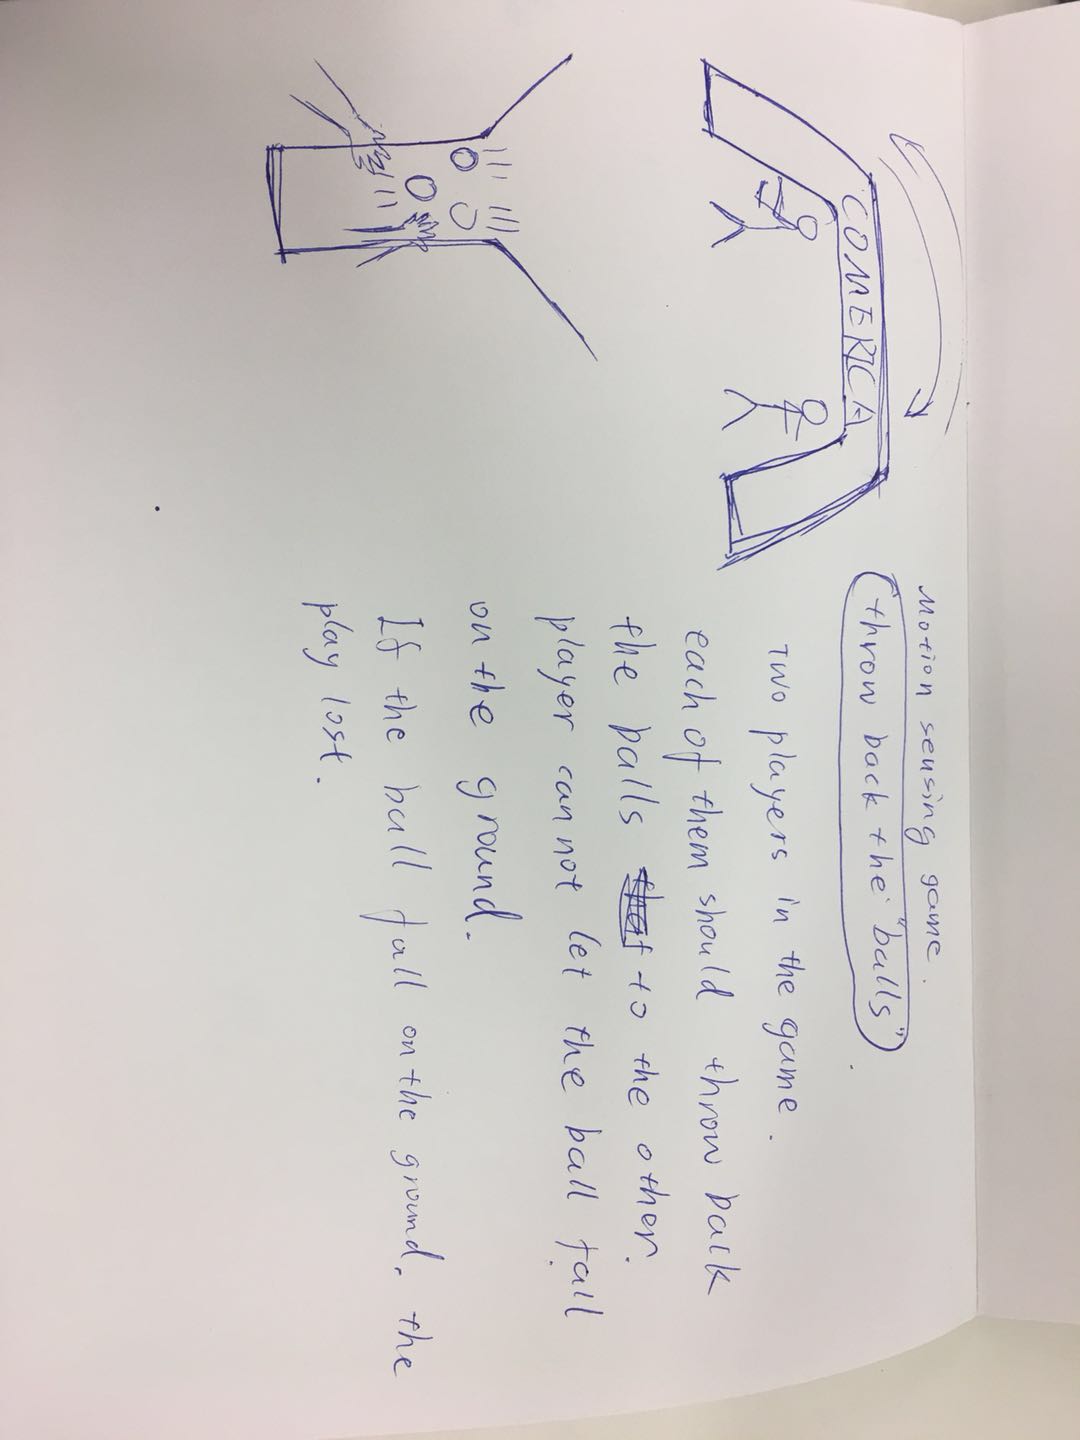 COMERICA
Motion sensing game.
throw back the "balls"
Two players in the game.
each of them should throw back
the balls to the other.
player can not let the ball fall
on the ground.
If the ball fall on the ground, the
play lost.